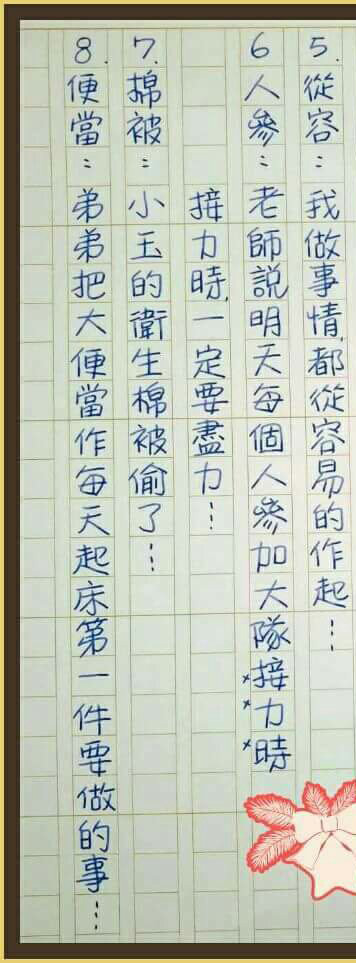 5.從容：我做事情,都從容易的作起…
6人參：老師說明天每個人參加大隊接力時
接力時,一定要盡力…
7.棉被：小玉的衛生棉被偷了…
8.便當：弟弟把大便當作每天起床第一件要做的事…